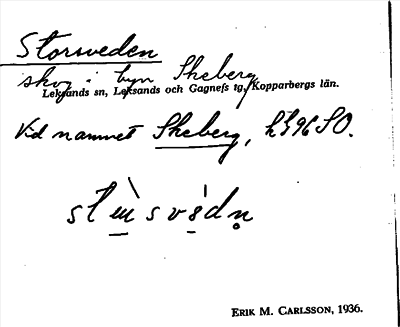 Storsveden
skog i byn Skeberg
Leksands sn, Leksands och Gagnefs tg, Kopparbergs län.
Vid namnet Skeberg,
ERIK M. CARLSSON, 1936.